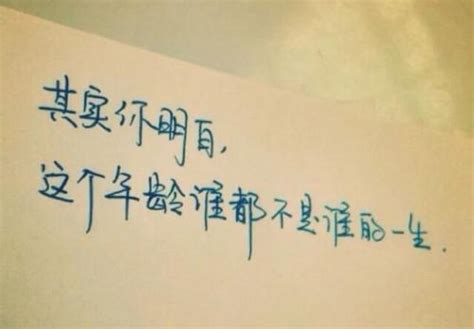 其实你明白,
这个年龄谁都不是谁的一生.